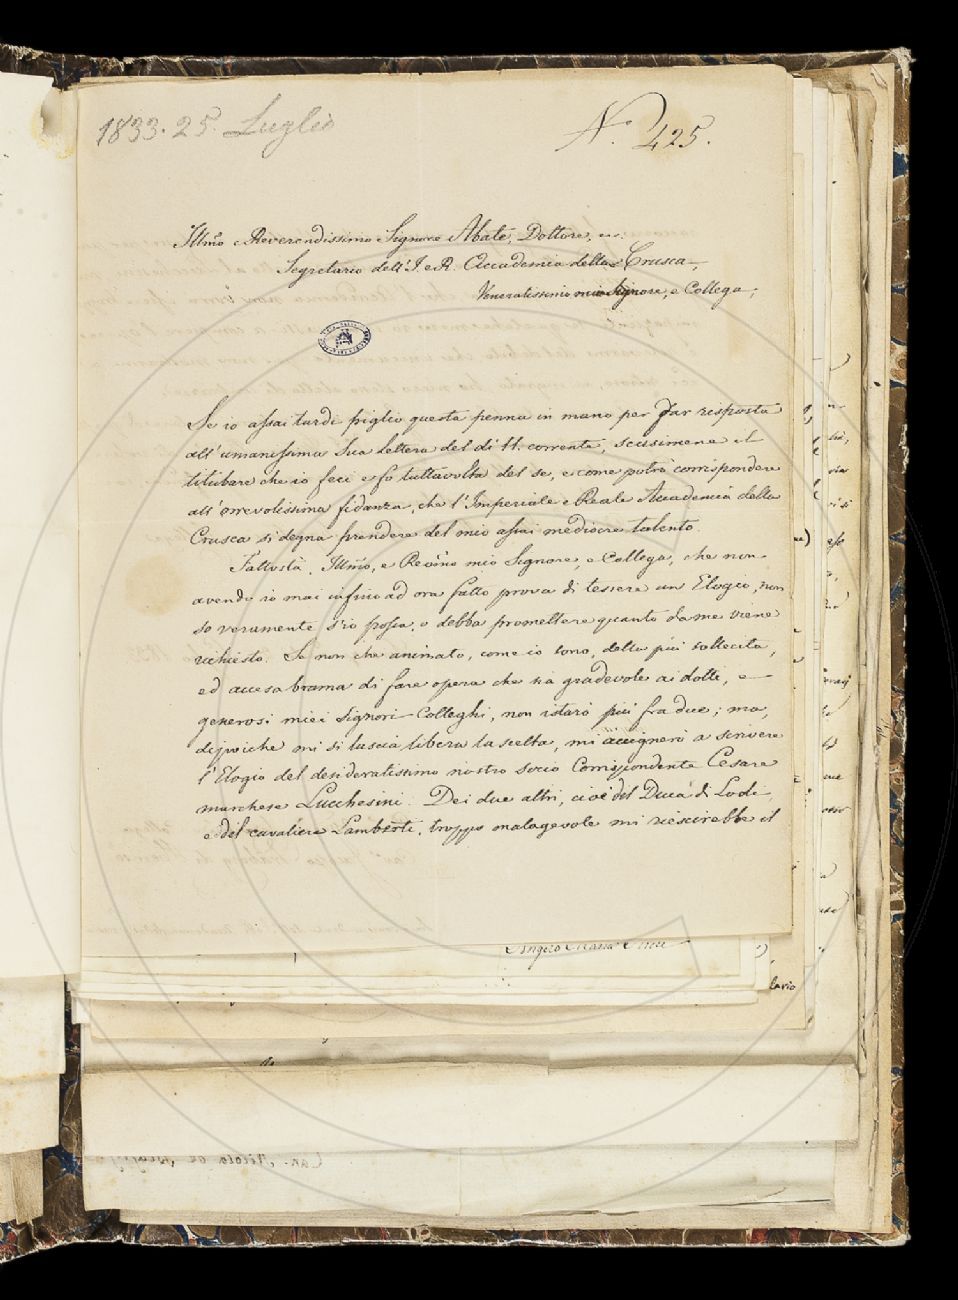 1833. 25. Luglio
N.° 425.
Illmo e Reverendissimo Signore Abate, Dottore, ec.
Segretario dell'I. e R. Accademia della Crusca,
Veneratissimo mio Signore, e Collega;
Se io assai tardi piglio questa penna in mano per far risposta
all'umanissima Sua lettera del dì 11. corrente, scusimene il
titubare che io feci e fo tuttavolta del se, e come potrò corrispondere
all'orrevolissima fidanza, che l'Imperiale e Reale Accademia della
Crusca si degna prendere del mio assai mediocre talento.
Fattostà, Illmo, e Revmo mio Signore, e Collega, che non
avendo io mai infino ad ora fatto prova di tessere un Elogio, non
so veramente s'io possa, o debba promettere quanto da me viene
richiesto. Se non che animato, come io sono, della più sollecita,
ed accesa brama di fare opera che sia gradevole ai dotti, e
generosi miei Signori Colleghi, non istarò più fra due; ma,
dipoiche mi si lascia libera la scelta, mi accignerò a scrivere
l'Elogio del desideratissimo nostro socio Corrispondente Cesare
marchese Lucchesini. Dei due altri, cioè del Duca di Lodi,
e del cavaliere Lamberti, troppo malagevole mi riescirebbe il
Angelo Maria Ricci
lario